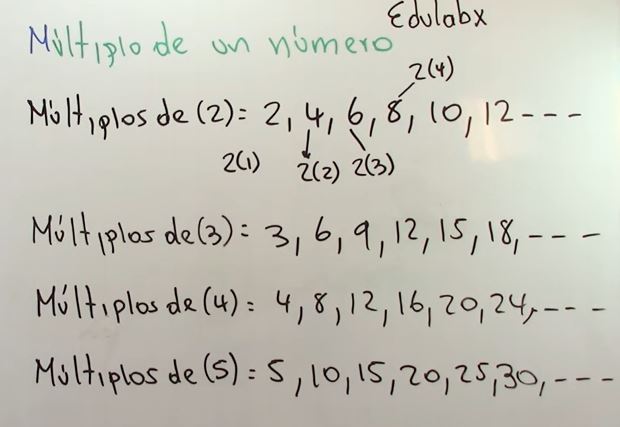 Edulabx
Múltiplo de un número
2(4)
Múltiplos de (2) = 2, 4, 6, 8, 10, 12 - - -
2(1) 2(2) 2(3)
Múltiplos de (3) = 3, 6, 9, 12, 15, 18, - - -
Múltiplos de (4) = 4, 8, 12, 16, 20, 24, - - -
Múltiplos de (5) = 5, 10, 15, 20, 25, 30, - - -